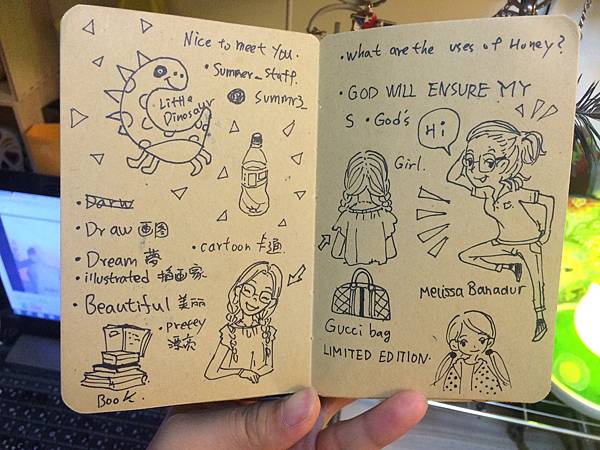 Nice to meet you.
• Summer_staff.
summr3_
Little
Dinosaur
• Draw
• Draw 画图
• Dream 梦
• cartoon 卡通
• illustrated 插画家
• Beautiful 美丽
• pretty
漂亮
Book.
• What are the uses of Honey?
• GOD WILL ENSURE MY
S • God's
Hi
Girl.
Melissa Bahadur
Gucci bag
LIMITED EDITION.